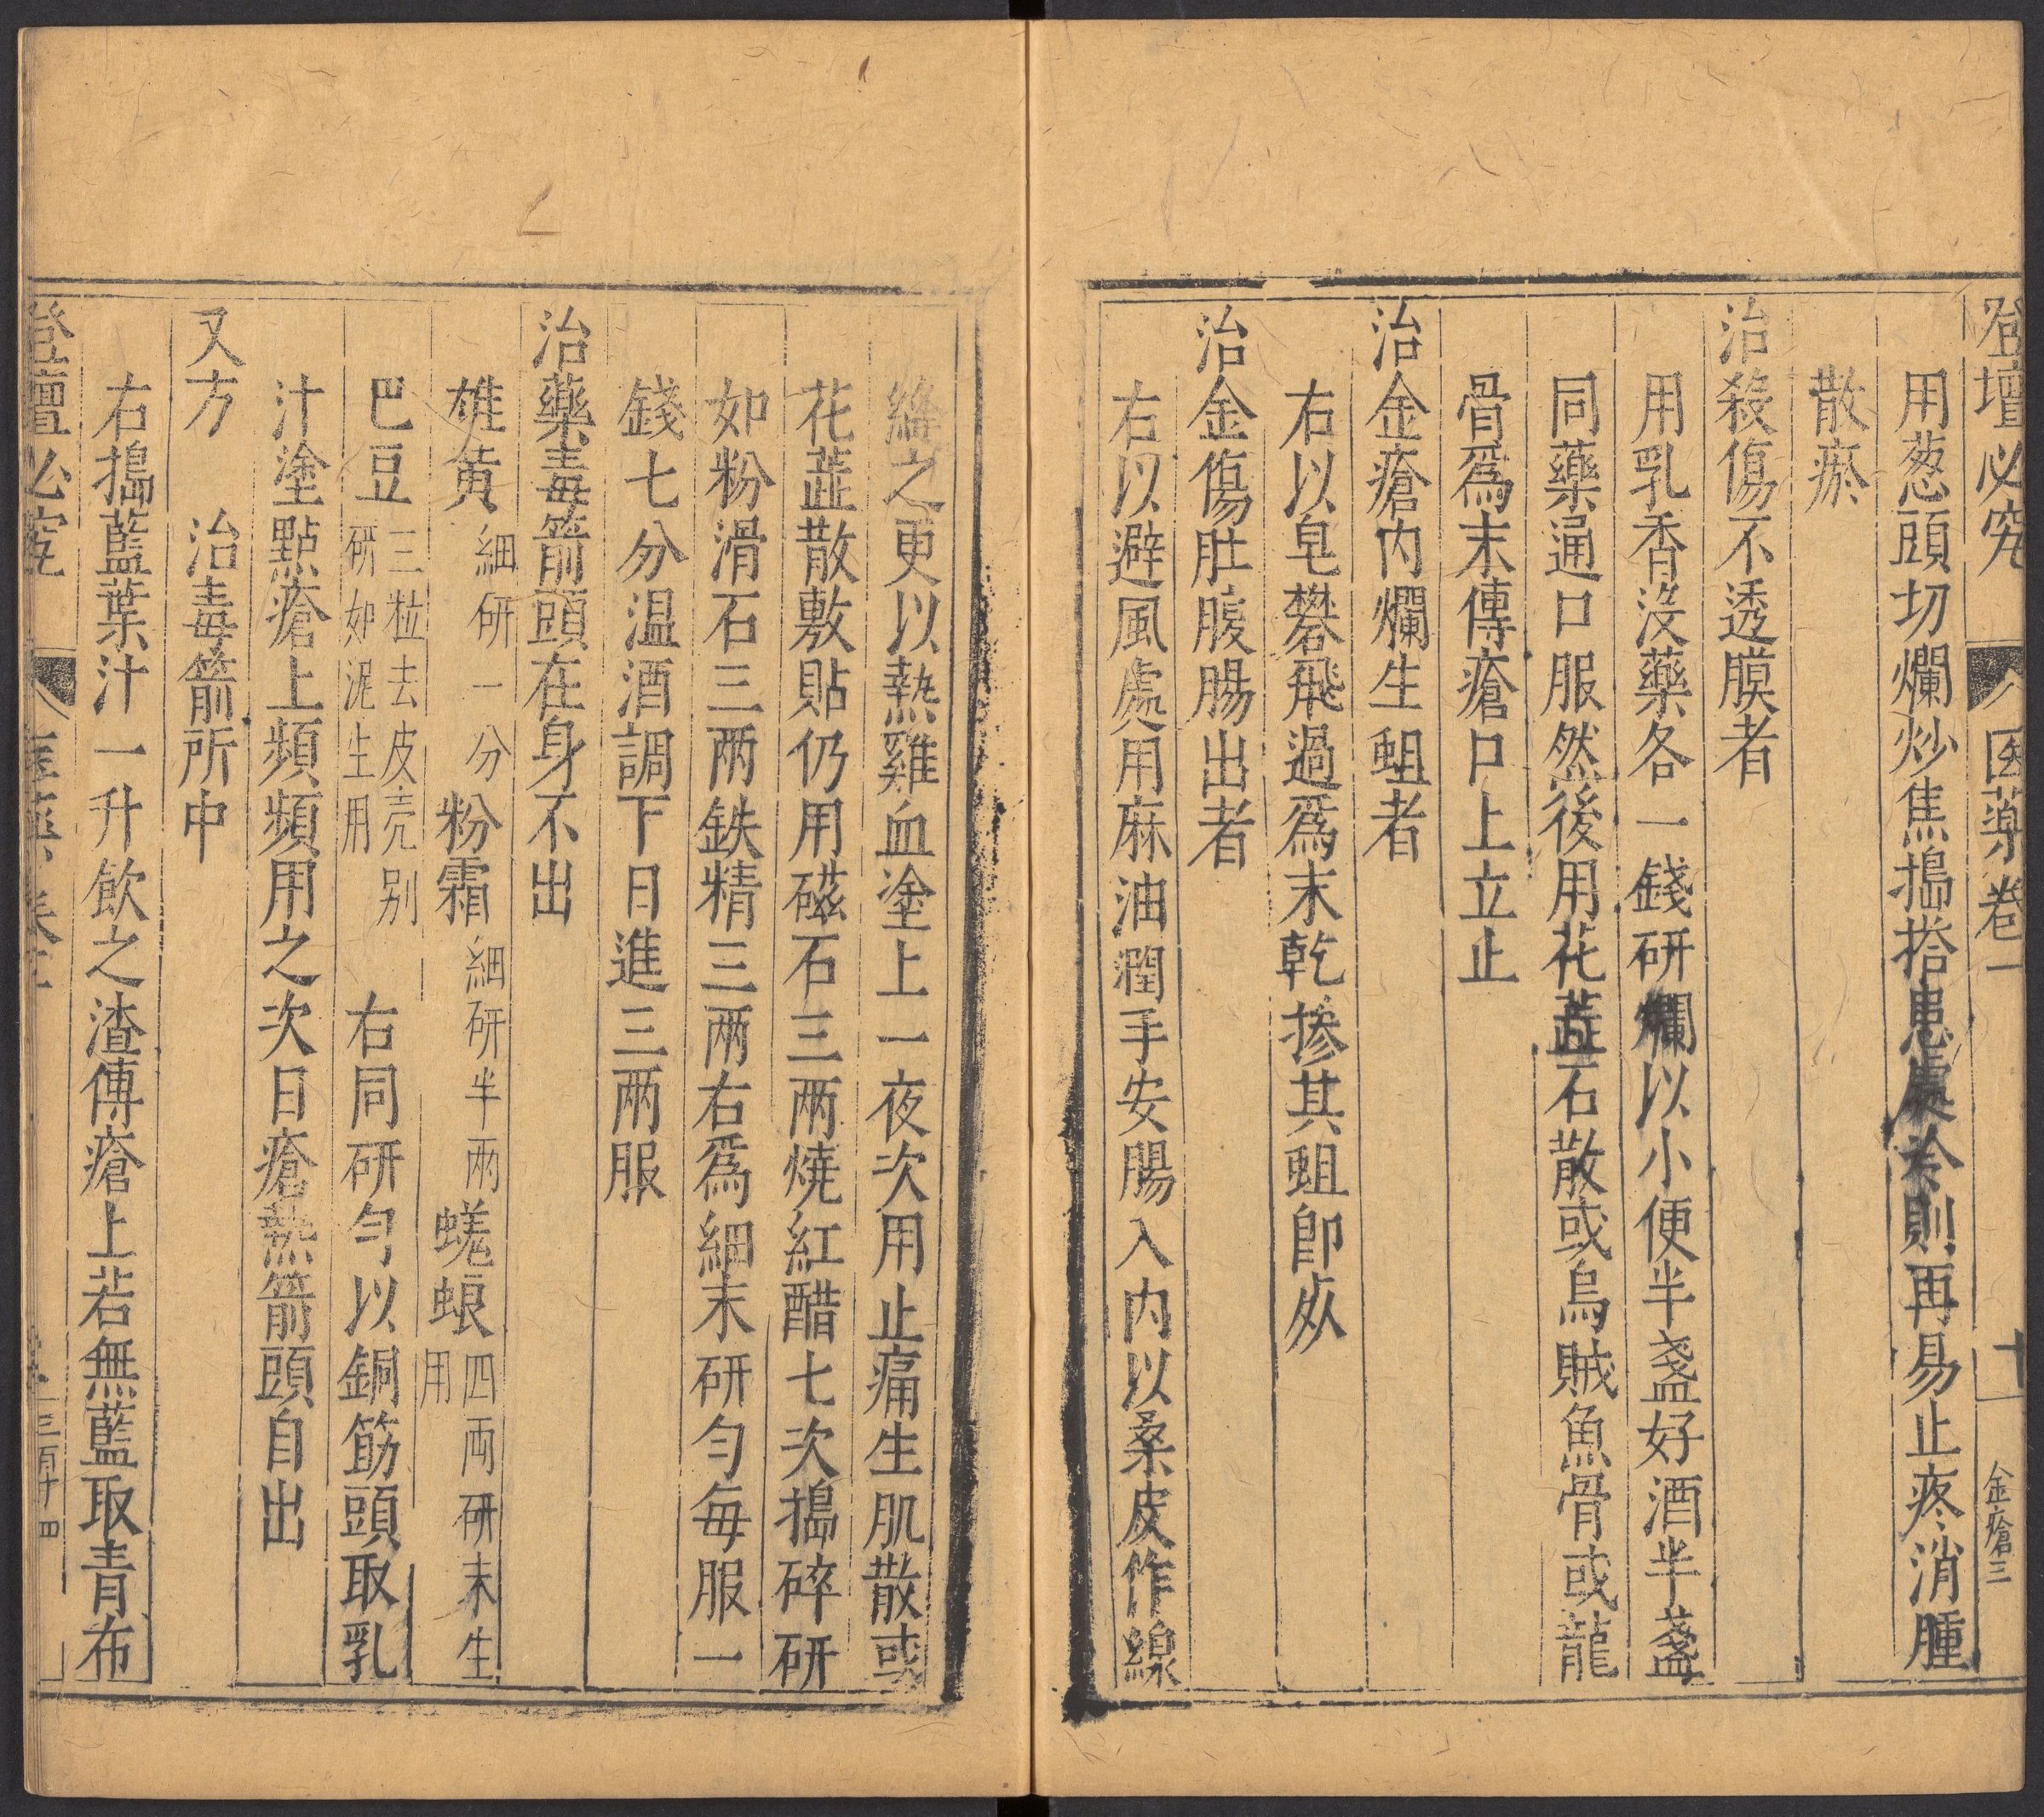 登壇必究 医藥卷一 十 金瘡三
用葱頭切爛炒焦搗搭患處冷則再易止疼消腫
散瘀
治殺傷不透膜者
用乳香沒藥各一錢研爛以小便半盞好酒半盞
同藥通口服然後用花蕋石散或烏賊魚骨或龍
骨爲末傳瘡口上立止
治金瘡內爛生蛆者
右以皂礬飛過爲末乾摻其蛆卽㱙
治金傷肚腹腸出者
右以避風處用麻油潤手安腸入內以桑皮作線
縫之更以熱雞血塗上一夜次用止痛生肌散或
花蕋散敷貼仍用磁石三兩燒紅醋七次搗碎研
如粉滑石三两鉄精三两右爲細末研勻每服一
錢七分温酒調下日進三兩服
治藥毒箭頭在身不出
雄黄細研一分粉霜細研半兩蜣蜋四両研末生用
巴豆三粒去皮壳别研如泥生用 右同研勻以銅筯頭取乳
汁塗點瘡上頻頻用之次日瘡熱箭頭自出
又方 治毒箭所中
右搗藍葉汁一升飲之渣傳瘡上若無藍取青布
登壇必究 三百十四